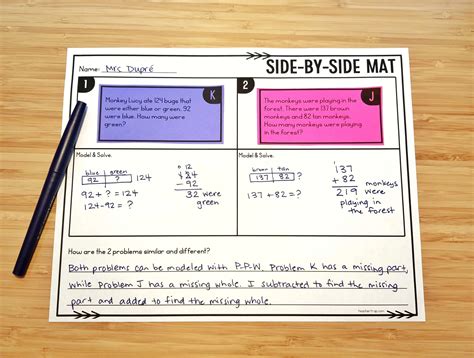 Name: Mrs Dupré
SIDE-BY-SIDE MAT
1
K
Monkey Lucy ate 124 bugs that
were either blue or green. 92
were blue. How many were
green?
2
J
The monkeys were playing in
the forest. There were 137 brown
monkeys and 82 tan monkeys.
How many monkeys were playing
in the forest?
Model & Solve.
blue green
92 ? 124
92 + ? = 124
124-92 = ?
0 12
124
- 92
32 were
green
Model & Solve.
brown tan
137 82 ?
137 + 82 = ?
137
+ 82
219 monkeys
were
playing in
the forest
How are the 2 problems similar and different?
Both problems can be modeled with P-P-W. Problem K has a missing part,
while problem J has a missing whole. I subtracted to find the missing
part and added to find the missing whole.